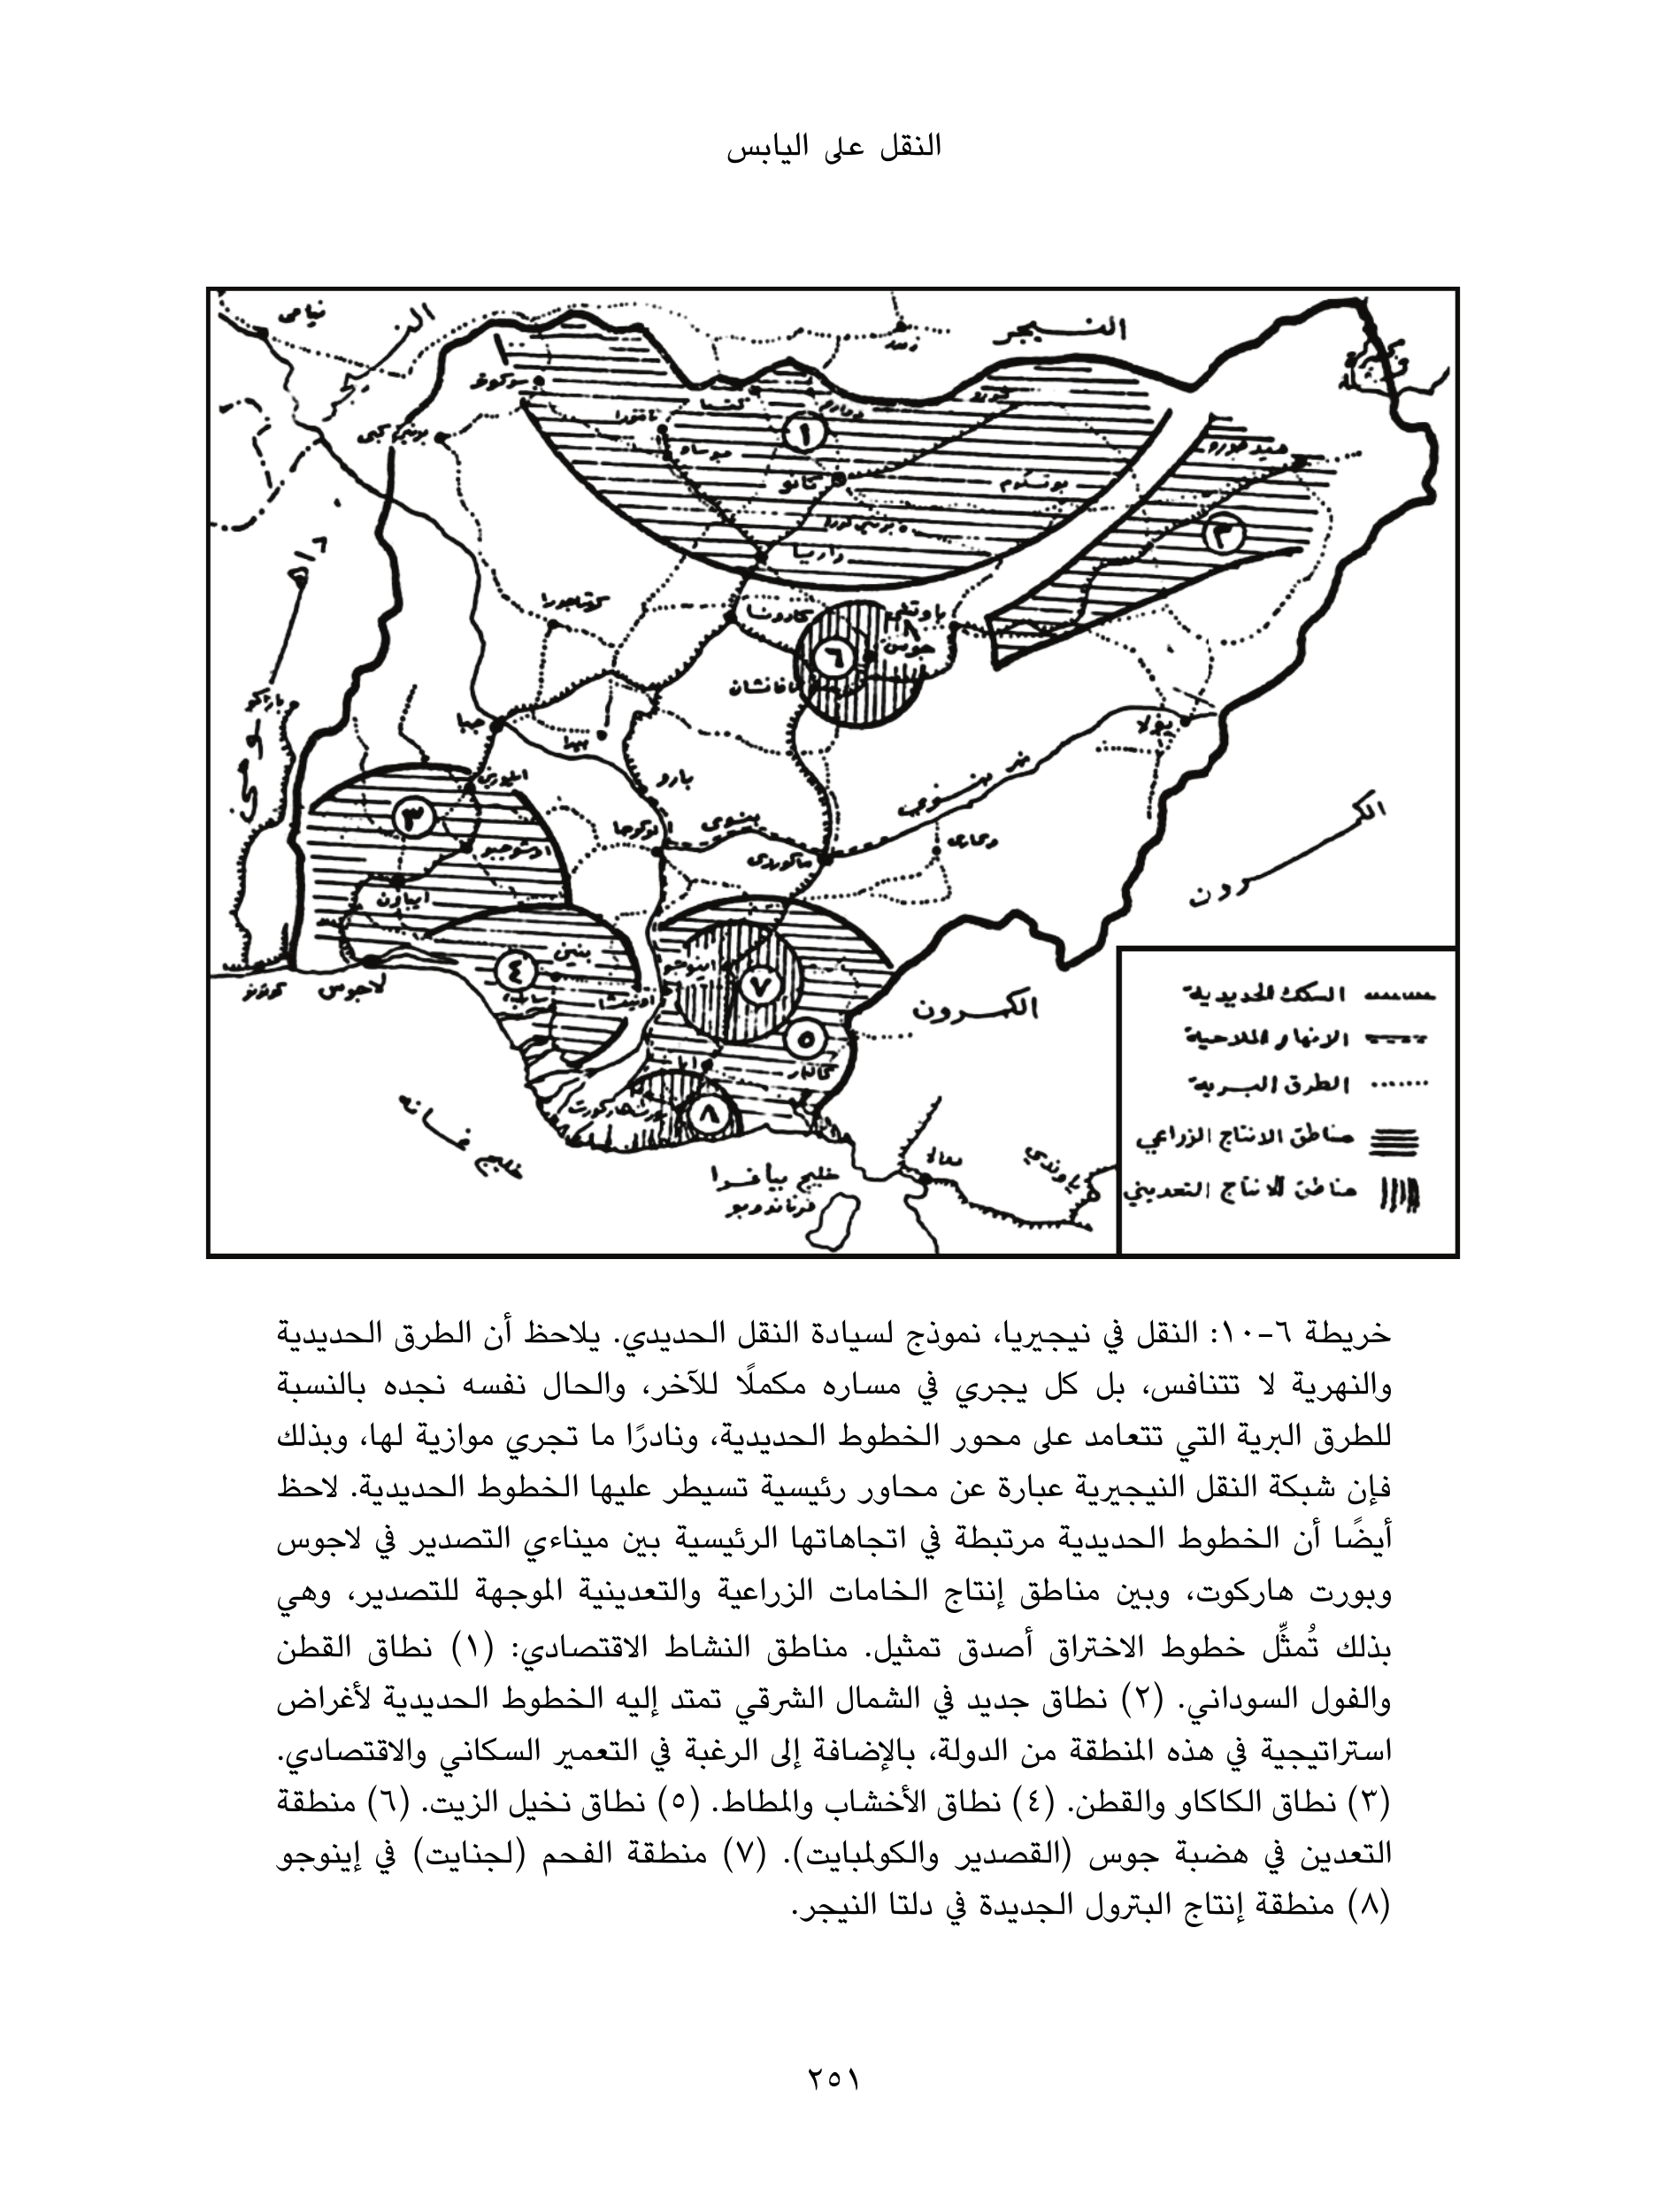 النقل على اليابس
نيامى
النيجر
سوكوتو
كانو
زاريا
كادونا
جوس
جبا
بارو
يولا
لوكوجا
بنوى
ماكوردى
ابيدان
بنين
لاجوس
كوتونو
الكمرون
كالابار
خليج بيافرا
فرناندوبو
السكك الحديدية
الانهار الملاحية
الطرق البرية
مناطق الانتاج الزراعي
مناطق الانتاج التعديني
١
٢
٣
٤
٥
٦
٧
٨
خريطة ٦-١٠: النقل في نيجيريا، نموذج لسيادة النقل الحديدي. يلاحظ أن الطرق الحديدية
والنهرية لا تتنافس، بل كل يجري في مساره مكملًا للآخر، والحال نفسه نجده بالنسبة
للطرق البرية التي تتعامد على محور الخطوط الحديدية، ونادرًا ما تجري موازية لها، وبذلك
فإن شبكة النقل النيجيرية عبارة عن محاور رئيسية تسيطر عليها الخطوط الحديدية. لاحظ
أيضًا أن الخطوط الحديدية مرتبطة في اتجاهاتها الرئيسية بين ميناءي التصدير في لاجوس
وبورت هاركوت، وبين مناطق إنتاج الخامات الزراعية والتعدينية الموجهة للتصدير، وهي
بذلك تُمثِّل خطوط الاختراق أصدق تمثيل. مناطق النشاط الاقتصادي: (١) نطاق القطن
والفول السوداني. (٢) نطاق جديد في الشمال الشرقي تمتد إليه الخطوط الحديدية لأغراض
استراتيجية في هذه المنطقة من الدولة، بالإضافة إلى الرغبة في التعمير السكاني والاقتصادي.
(٣) نطاق الكاكاو والقطن. (٤) نطاق الأخشاب والمطاط. (٥) نطاق نخيل الزيت. (٦) منطقة
التعدين في هضبة جوس (القصدير والكولمبايت). (٧) منطقة الفحم (لجنايت) في إينوجو
(٨) منطقة إنتاج البترول الجديدة في دلتا النيجر.
٢٥١